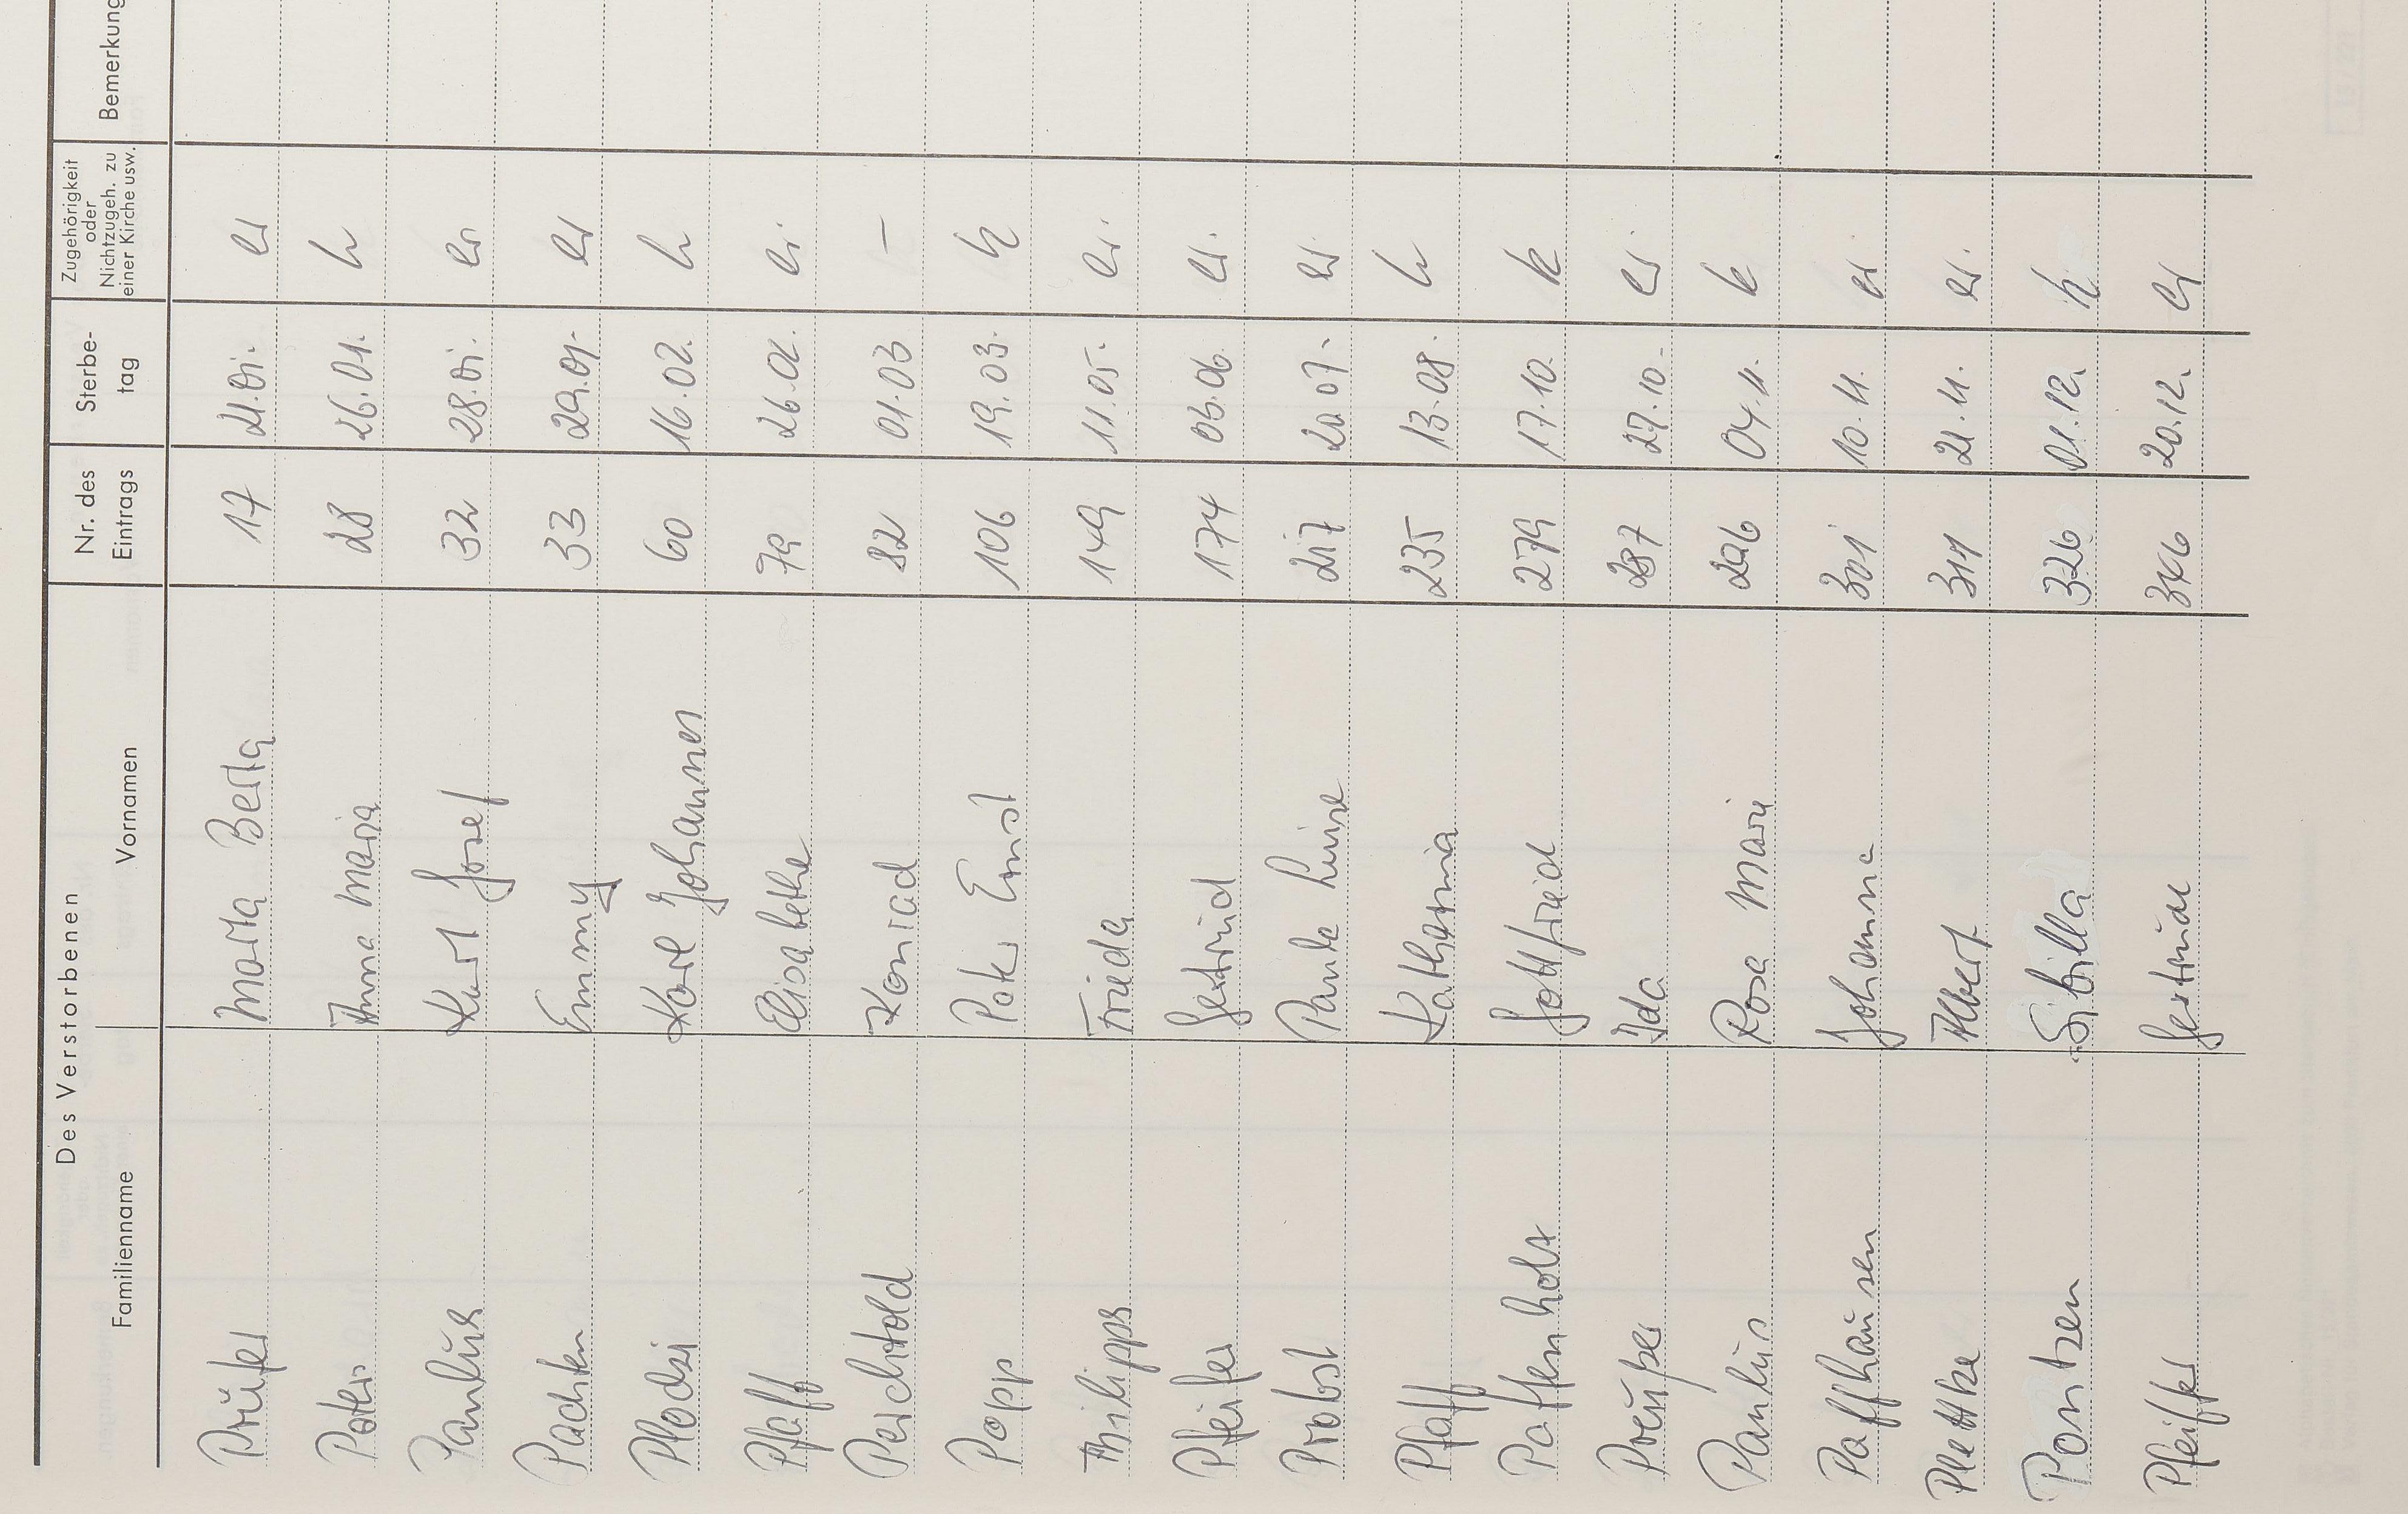 Des Verstorbenen
Familienname Vornamen Nr. des Eintrags Sterbe-tag Zugehörigkeit oder Nichtzugeh. zu einer Kirche usw. Bemerkung
Prüfer Marta Berta 17 21.01. ev
Peters Anna Maria 28 26.01. k
Paulus Kurt Josef 32 28.01. ev
Pachten Emmy 33 29.01. ev
Plodzi Karl Johannes 60 16.02. k
Pfaff Elisabethe 79 26.02. ev.
Perchtold Konrad 82 01.03 –
Popp Peter Ernst 106 19.03. k
Philipps Frieda 149 11.05. ev.
Pfeifer Gertrud 174 03.06. ev.
Probst Paula Luise 217 20.07. ev
Pfaff Katharina 235 13.08. k
Paffenholz Gottfried 279 17.10. k
Preußer Ida 287 27.10. ev.
Paulus Rosa Marie 296 04.11. k
Paffhausen Johanna 301 10.11. ev
Plettke Albert 314 21.11. ev.
Pontzen Sibilla 326 01.12. k
Pfeiffer Gertrude 346 20.12. ev